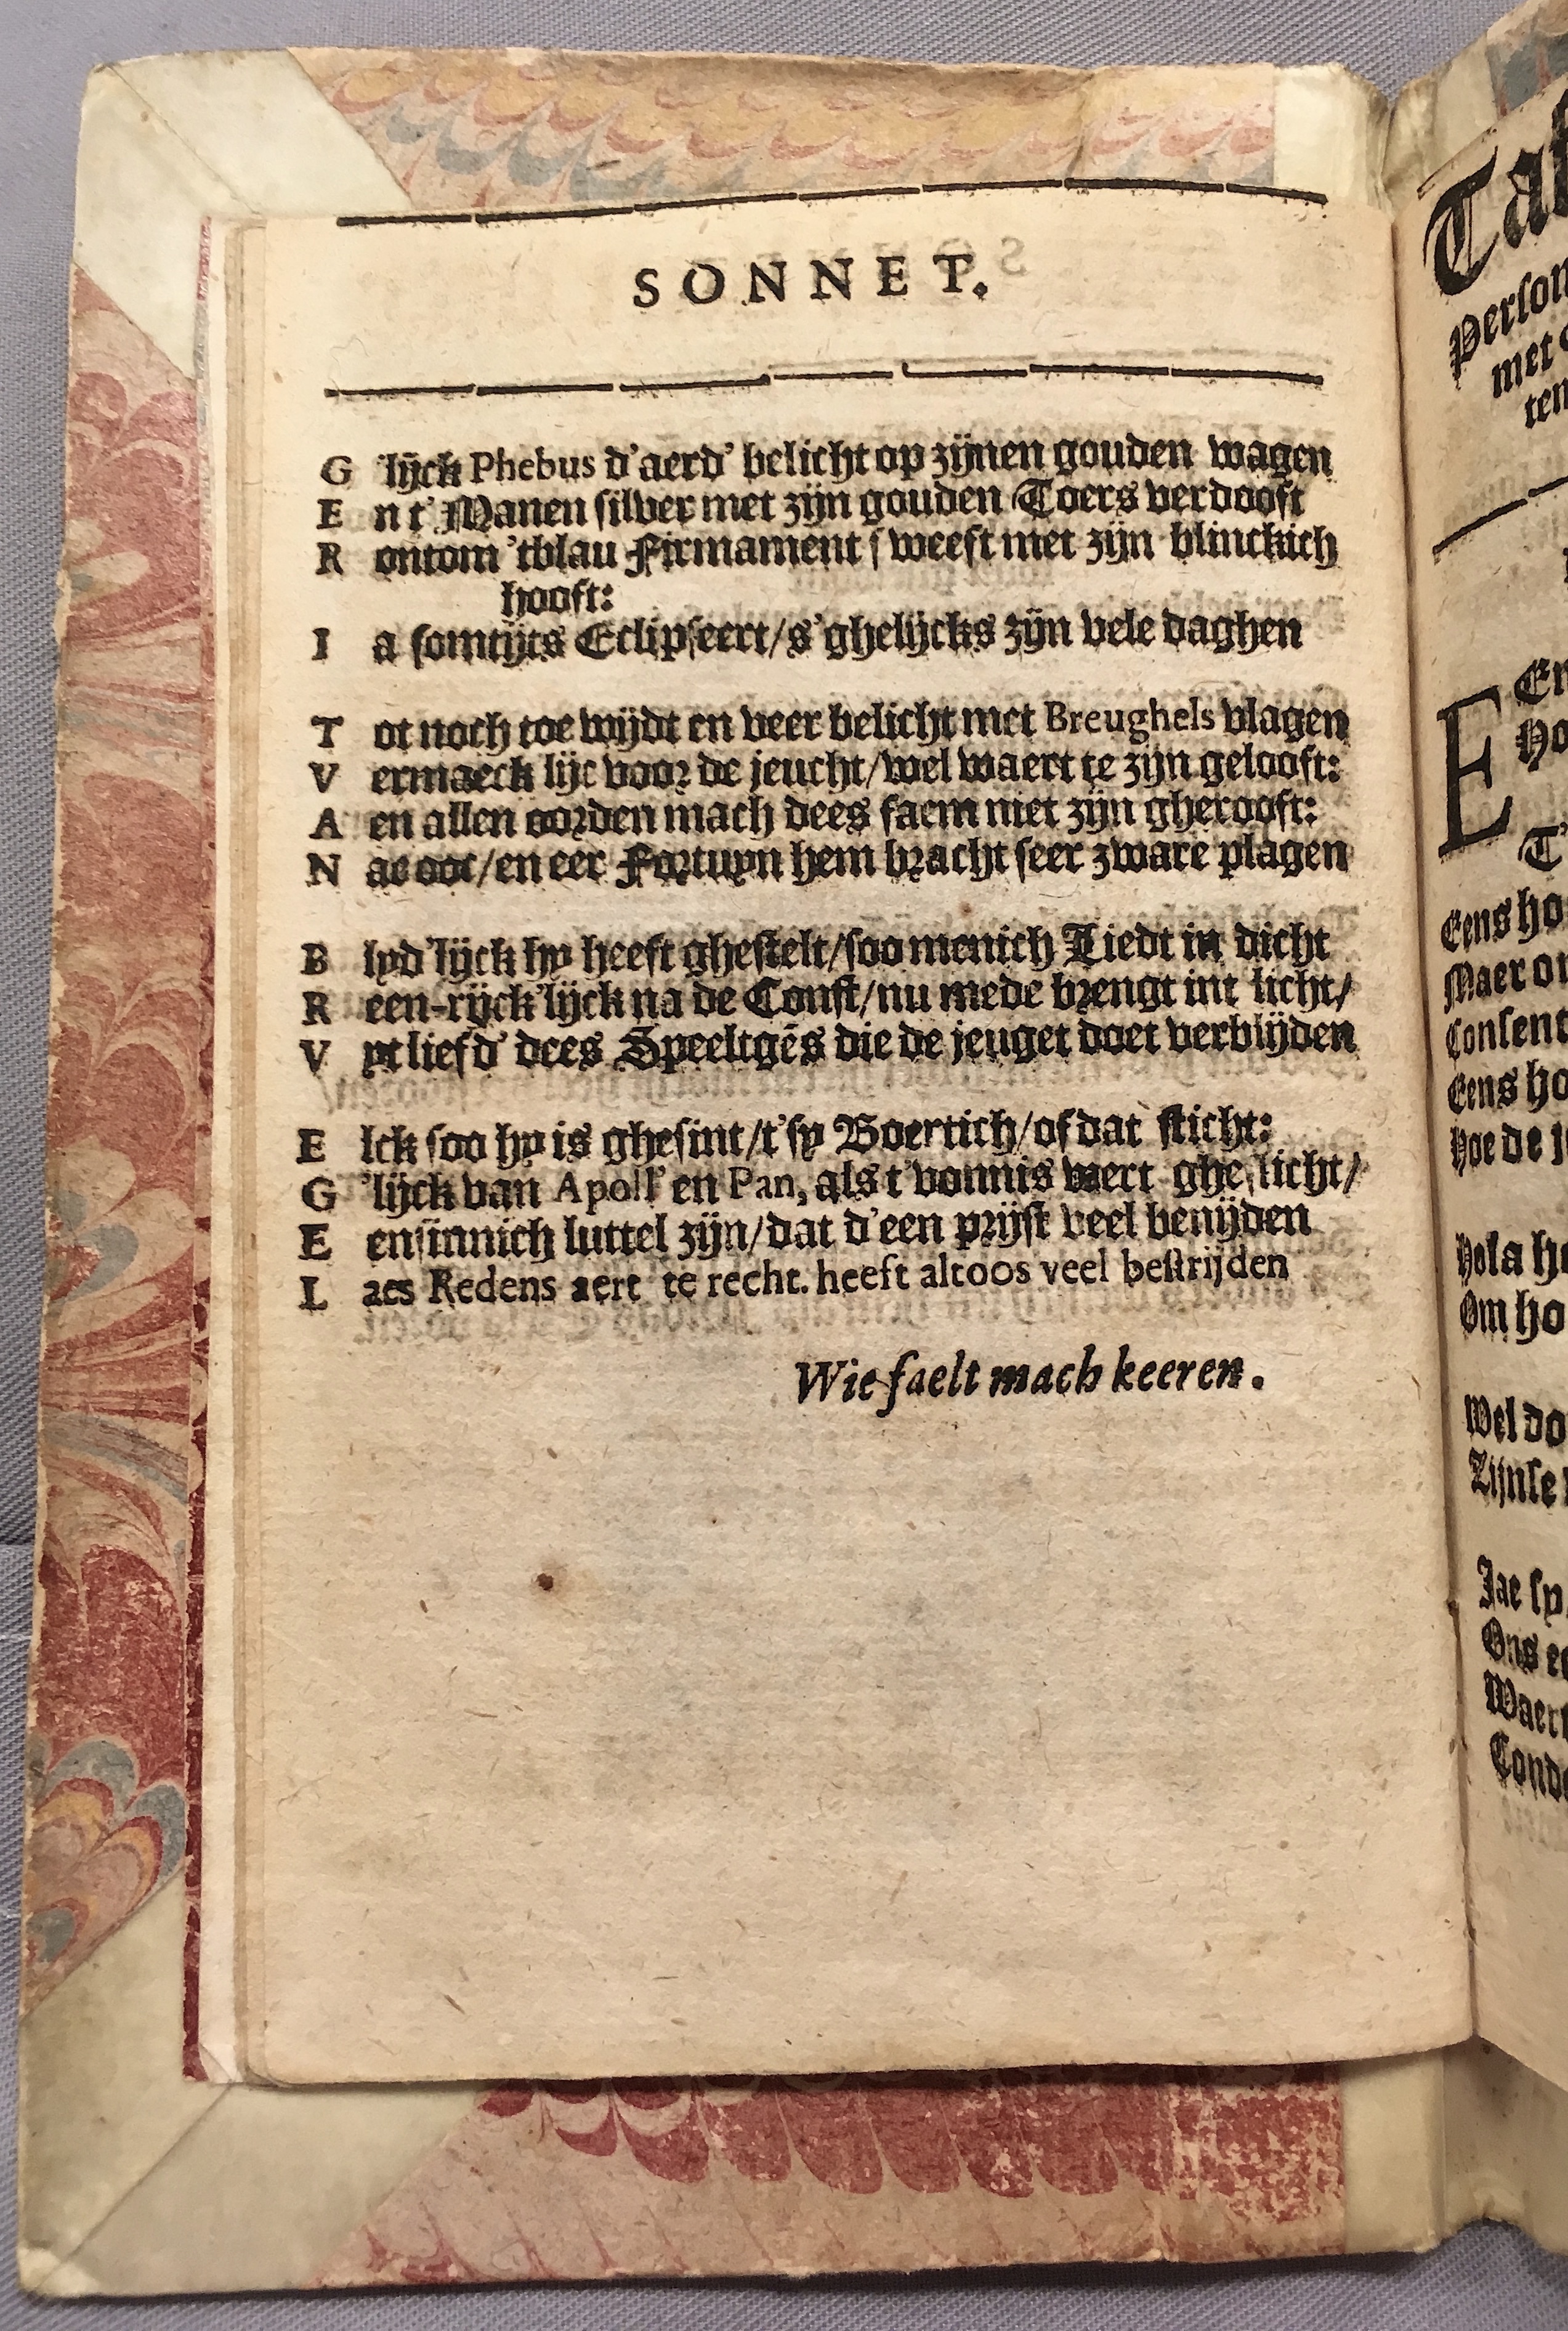 SONNET.
G 'lijck Phebus d'aerd' belicht op zijnen gouden wagen
E n t' Manen silver met zijn gouden Toers verdooft
R ontom 'tblau Firmament sweeft met zijn blinckich
hooft:
I a somtijts Eclipseert/s'ghelijcks zijn vele daghen
T ot noch toe wijdt en veer belicht met Breughels vlagen
V ermaeck lijc voor de jeucht/wel waert te zijn gelooft:
A en allen oorden mach dees faem niet zijn gherooft:
N ae oor/en eer Fortuyn hem bracht seer zware plagen
B lyd'lijck hy heeft ghestelt/soo menich Liedt in dicht
R een-rijck'lijck na de Const/nu mede brengt int licht/
V yt liefd' dees Speeltgēs die de jeuget doet verblijden
E lck soo hy is ghesint/t'sy Boertich/of dat sticht:
G 'lijck van Apoll' en Pan, als t'vonnis wert ghe,licht/
E ensinnich luttel zijn/dat d'een prijst veel benijden
L aes Redens aert te recht. heeft altoos veel bestrijden
Wie faelt mach keeren.
Tab
Person
met
ten
E
Er
Ho
T'
Eens ho
Maer on
Consent
Eens ho
Hoe de j
Hola ho
Om ho
Wel do
Zijnse
Jae sy
Ons
Waer
Cond